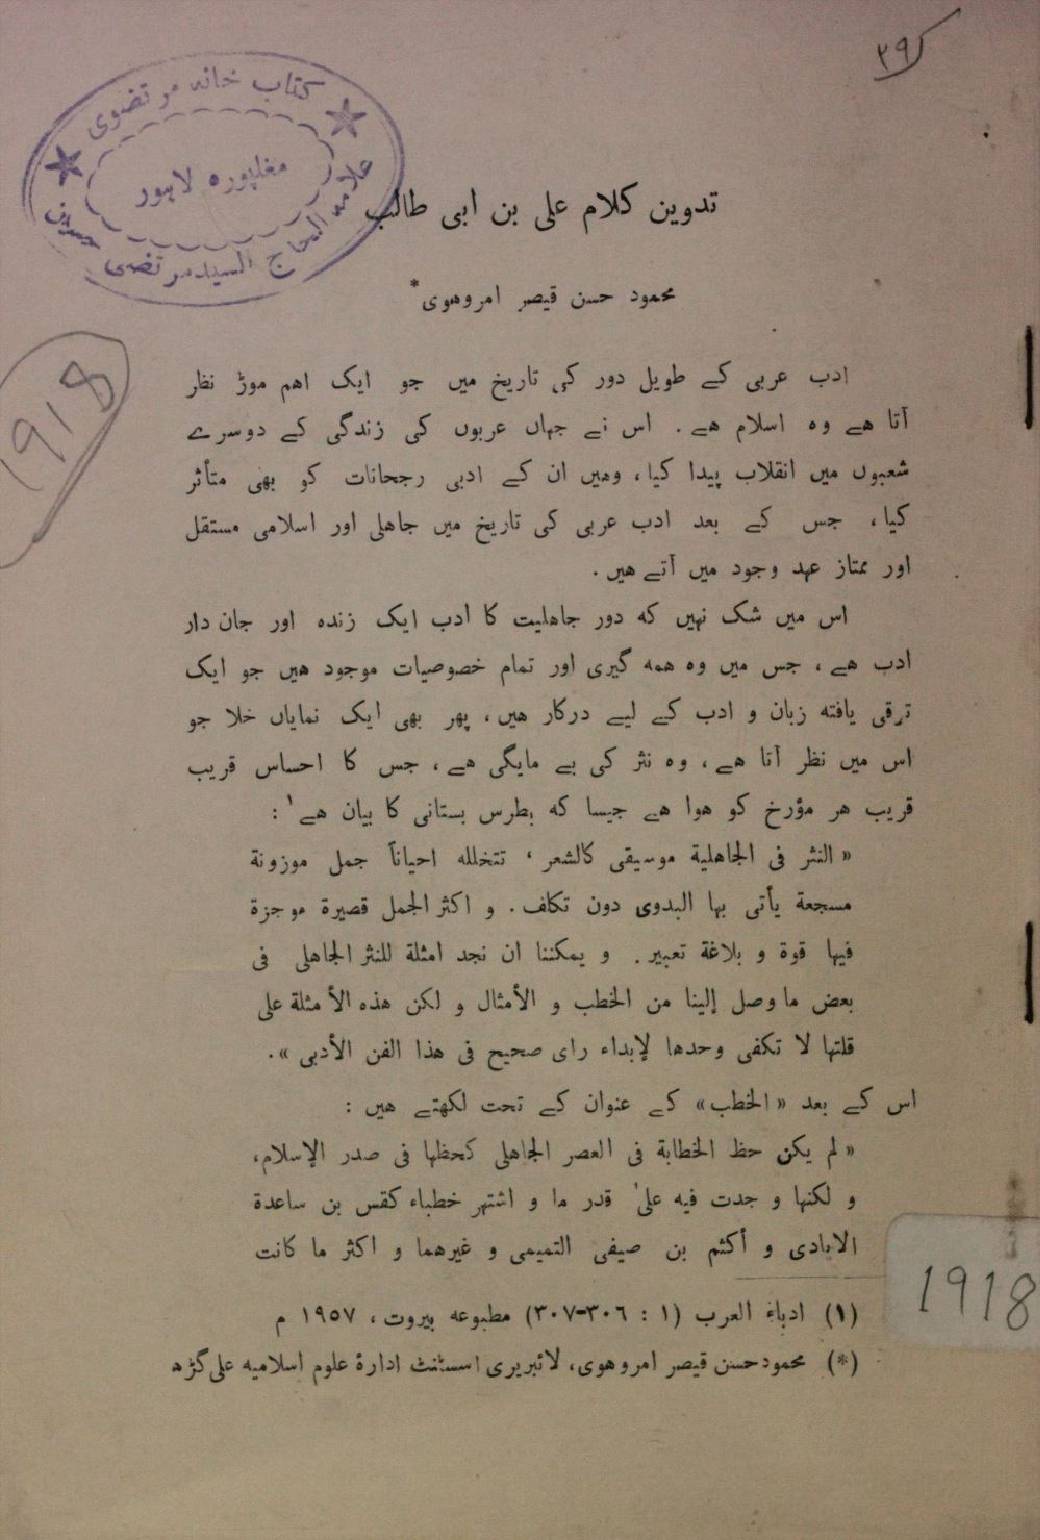 ۳۹
کتاب خانہ مرتضوی
مغلپورہ لاہور
علامہ الحاج السید مرتضی حسین
تدوین کلام علی بن ابی طالب
محمود حسن قیصر امروہوی*
1918
ادب عربی کے طویل دور کی تاریخ میں جو ایک اہم موڑ نظر
آتا ہے وہ اسلام ہے۔ اس نے جہاں عربوں کی زندگی کے دوسرے
شعبوں میں انقلاب پیدا کیا، وہیں ان کے ادبی رجحانات کو بھی متأثر
کیا، جس کے بعد ادب عربی کی تاریخ میں جاہلی اور اسلامی مستقل
اور ممتاز عہد وجود میں آتے ہیں۔
اس میں شک نہیں کہ دور جاہلیت کا ادب ایک زندہ اور جان دار
ادب ہے، جس میں وہ ہمہ گیری اور تمام خصوصیات موجود ہیں جو ایک
ترقی یافتہ زبان و ادب کے لیے درکار ہیں، پھر بھی ایک نمایاں خلا جو
اس میں نظر آتا ہے، وہ نثر کی بے مایگی ہے، جس کا احساس قریب
قریب ہر مؤرخ کو ہوا ہے جیسا کہ بطرس بستانی کا بیان ہے¹ :
« النثر فی الجاهلیة موسیقی کالشعر، تتخلله احیاناً جمل موزونة
مسجعة یأتی بها البدوی دون تکلف. و اکثر الجمل قصیرة موجزة
فیها قوة و بلاغة تعبیر. و یمکننا ان نجد امثلة للنثر الجاهلی فی
بعض ما وصل إلینا من الخطب و الأمثال و لکن هذه الأمثلة علی
قلتها لا تکفی وحدها لإبداء رای صحیح فی هذا الفن الأدبی ».
اس کے بعد « الخطب» کے عنوان کے تحت لکھتے ہیں :
« لم یکن حظ الخطابة فی العصر الجاهلی کحظها فی صدر الإسلام،
و لکنها و جدت فیه علیٰ قدر ما و اشتهر خطباء کقس بن ساعدة
الایادی و أکثم بن صیفی التمیمی و غیرهما و اکثر ما کانت
1918
(۱) ادباء العرب (۱ : ۳۰۶-۳۰۷) مطبوعہ بیروت، ۱۹۵۷ م
(*) محمود حسن قیصر امروہوی، لائبریری اسسٹنٹ ادارۂ علوم اسلامیہ علی گڑھ